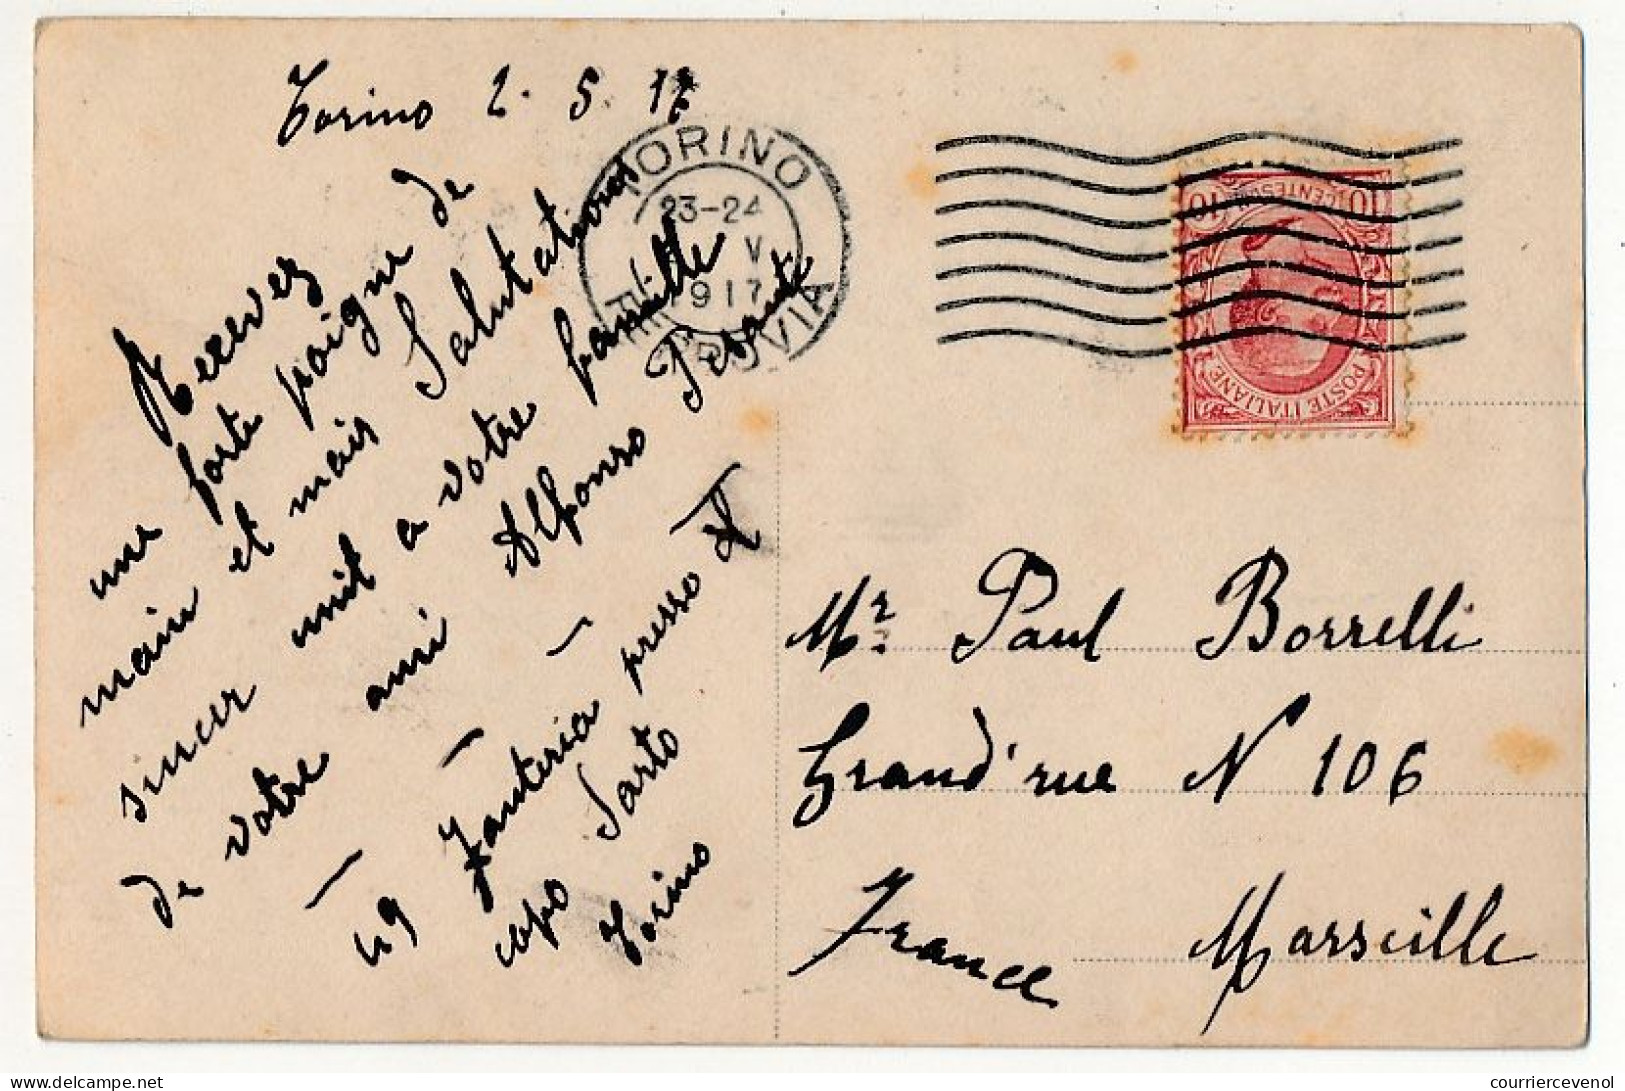 Torino 2. 5. 17
Recevez
une forte poigne de
main et mais Salutations
sincer unit a votre famille
de votre ami Alfonso
49 Fanteria presso
capo Sarto
Torino
TORINO
23-24
V
1917
FERROVIA
10 CENTESIMI 10
POSTE ITALIANE
Mr Paul Borrelli
Grand'rue N 106
Marseille
France
courriercevenol.com